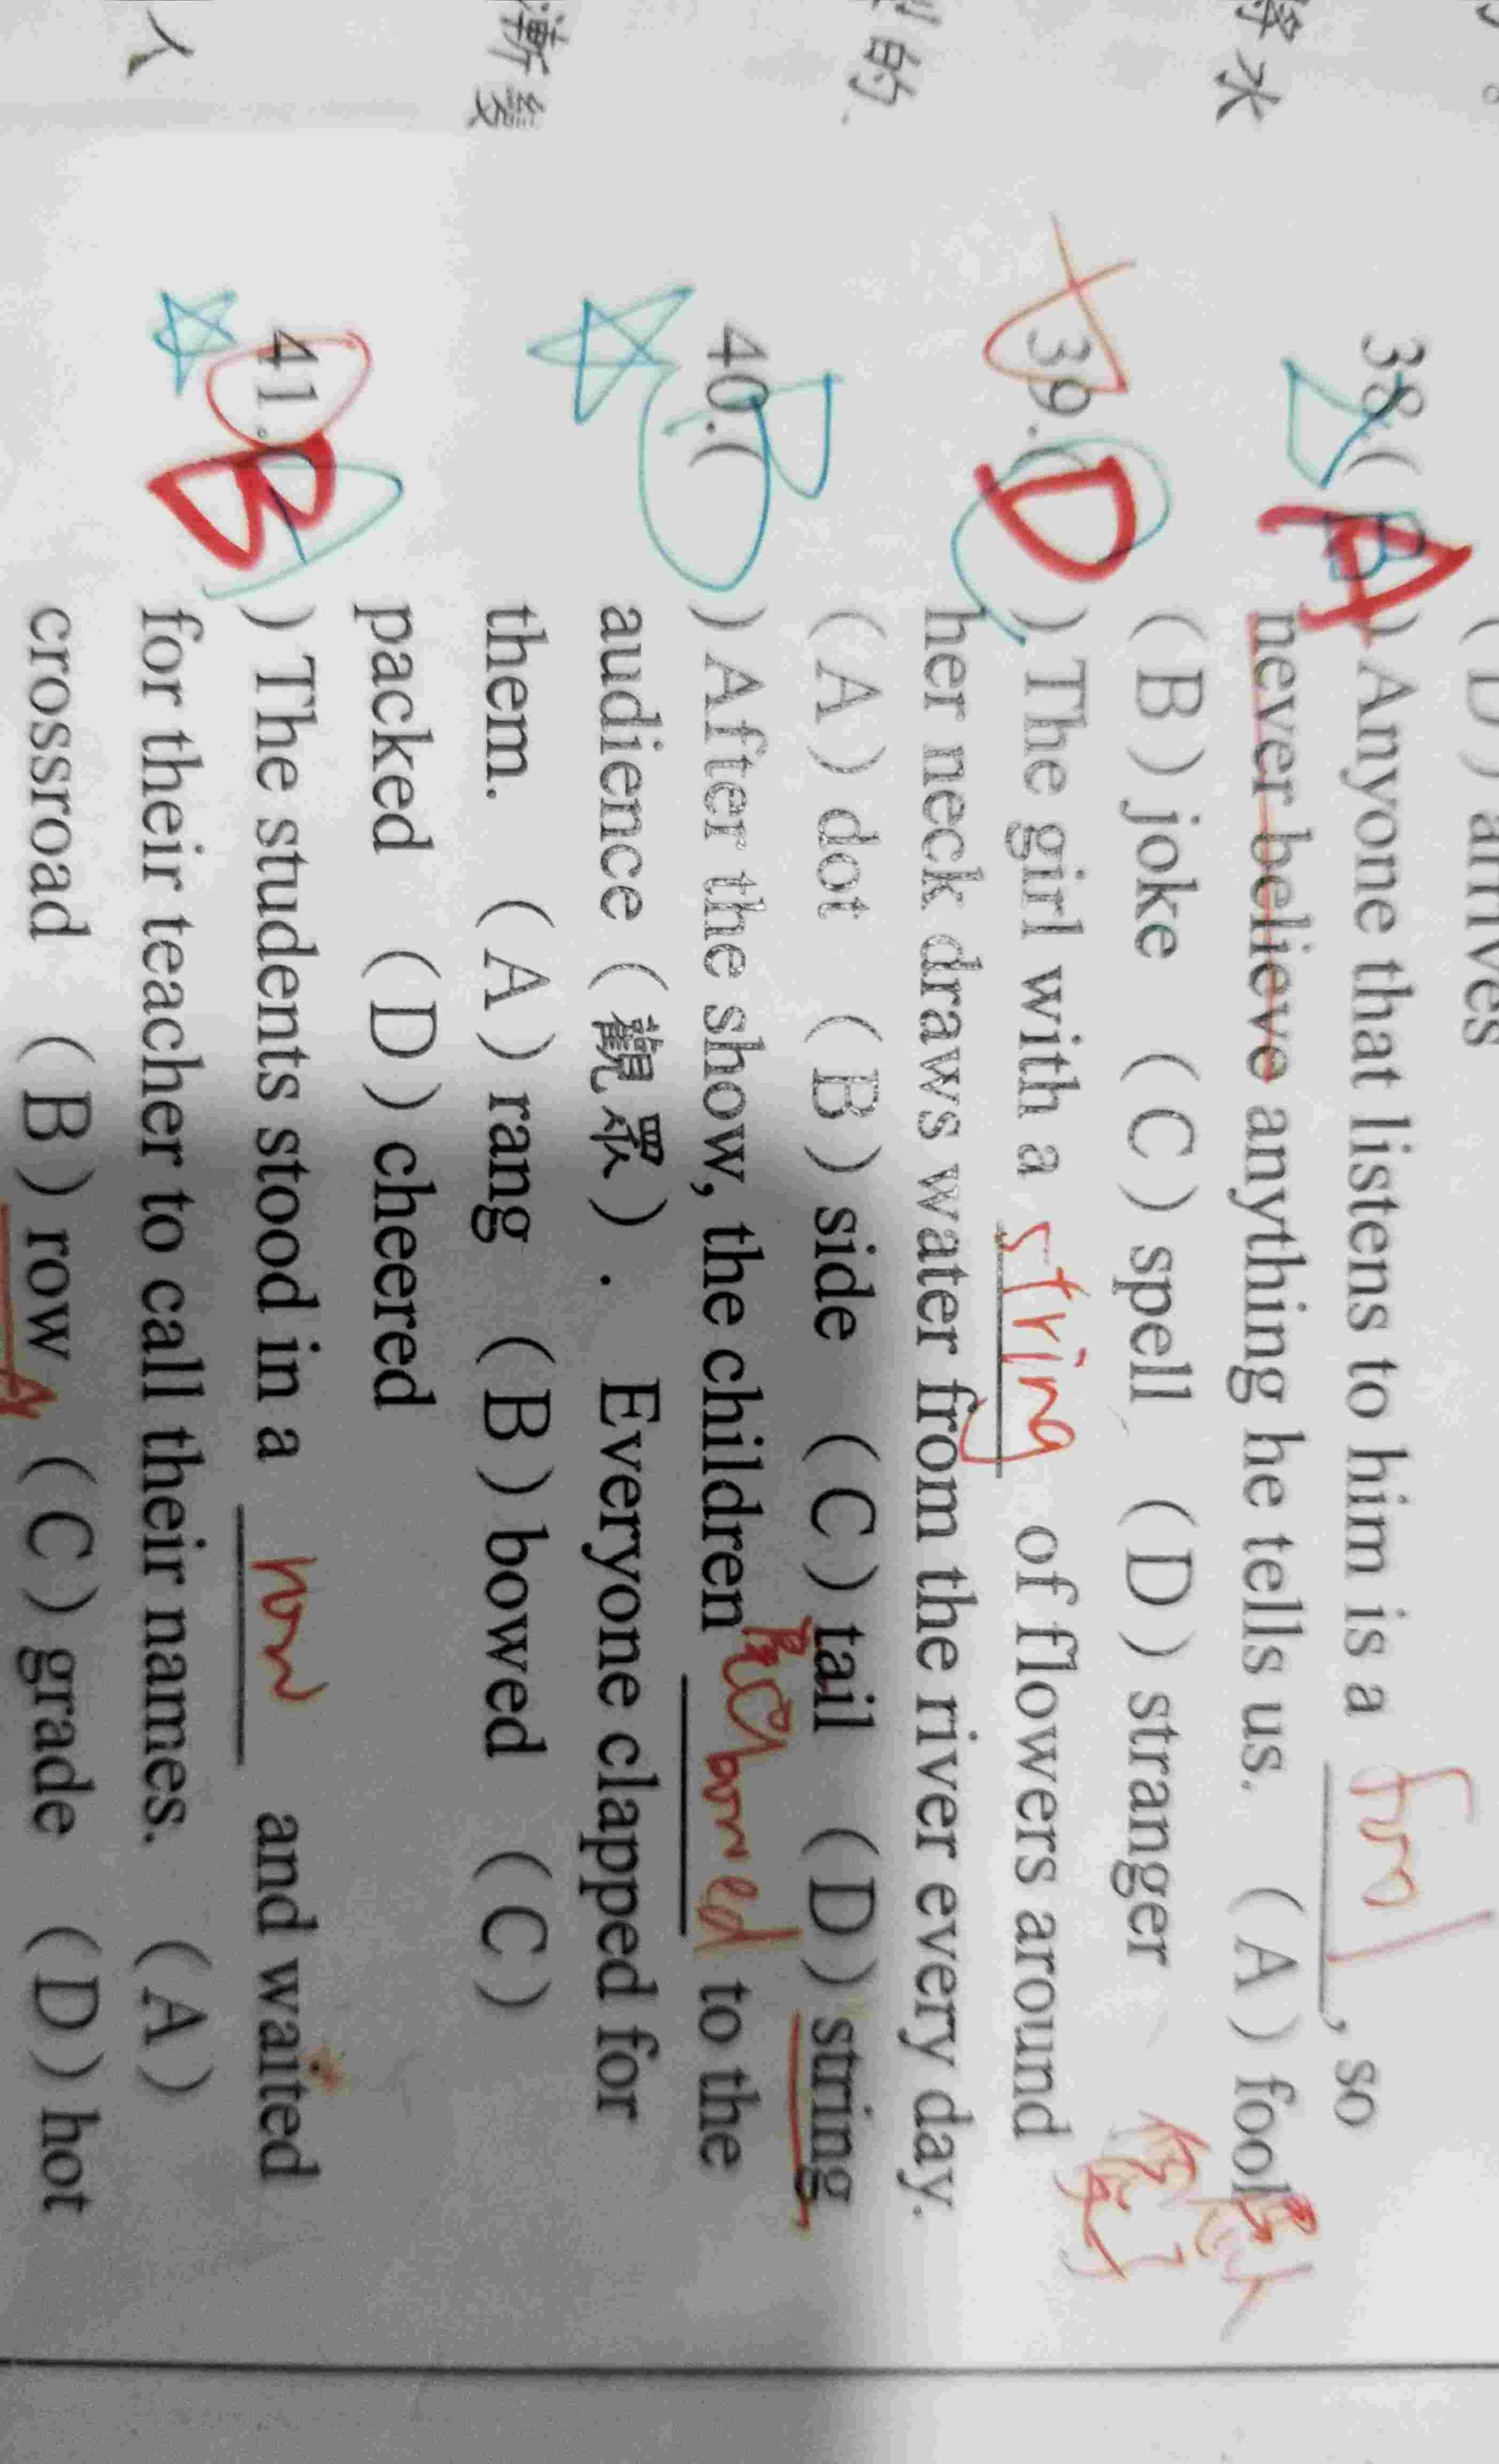 ( D ) arrives
38. ( A ) Anyone that listens to him is a fool, so
never believe anything he tells us. ( A ) fool
( B ) joke ( C ) spell ( D ) stranger
39. ( D ) The girl with a string of flowers around
her neck draws water from the river every day.
( A ) dot ( B ) side ( C ) tail ( D ) string
40. ( B ) After the show, the children bowed to the
audience ( 觀眾 ) . Everyone clapped for
them. ( A ) rang ( B ) bowed ( C )
packed ( D ) cheered
41. ( B ) The students stood in a row and waited
for their teacher to call their names. ( A )
crossroad ( B ) row ( C ) grade ( D ) hot
水
的
漸變
人